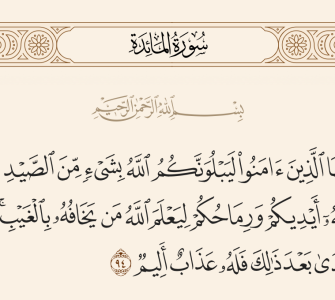 سُورَةُ المَائِدَةِ
بِسْمِ اللَّهِ الرَّحْمَٰنِ الرَّحِيمِ
ٱلَّذِينَ ءَامَنُواْ لَيَبۡلُوَنَّكُمُ ٱللَّهُ بِشَيۡءٖ مِّنَ ٱلصَّيۡدِ
أَيۡدِيكُمۡ وَرِمَاحُكُمۡ لِيَعۡلَمَ ٱللَّهُ مَن يَخَافُهُۥ بِٱلۡغَيۡبِۚ
بَعۡدَ ذَٰلِكَ فَلَهُۥ عَذَابٌ أَلِيمٞ ٩٤